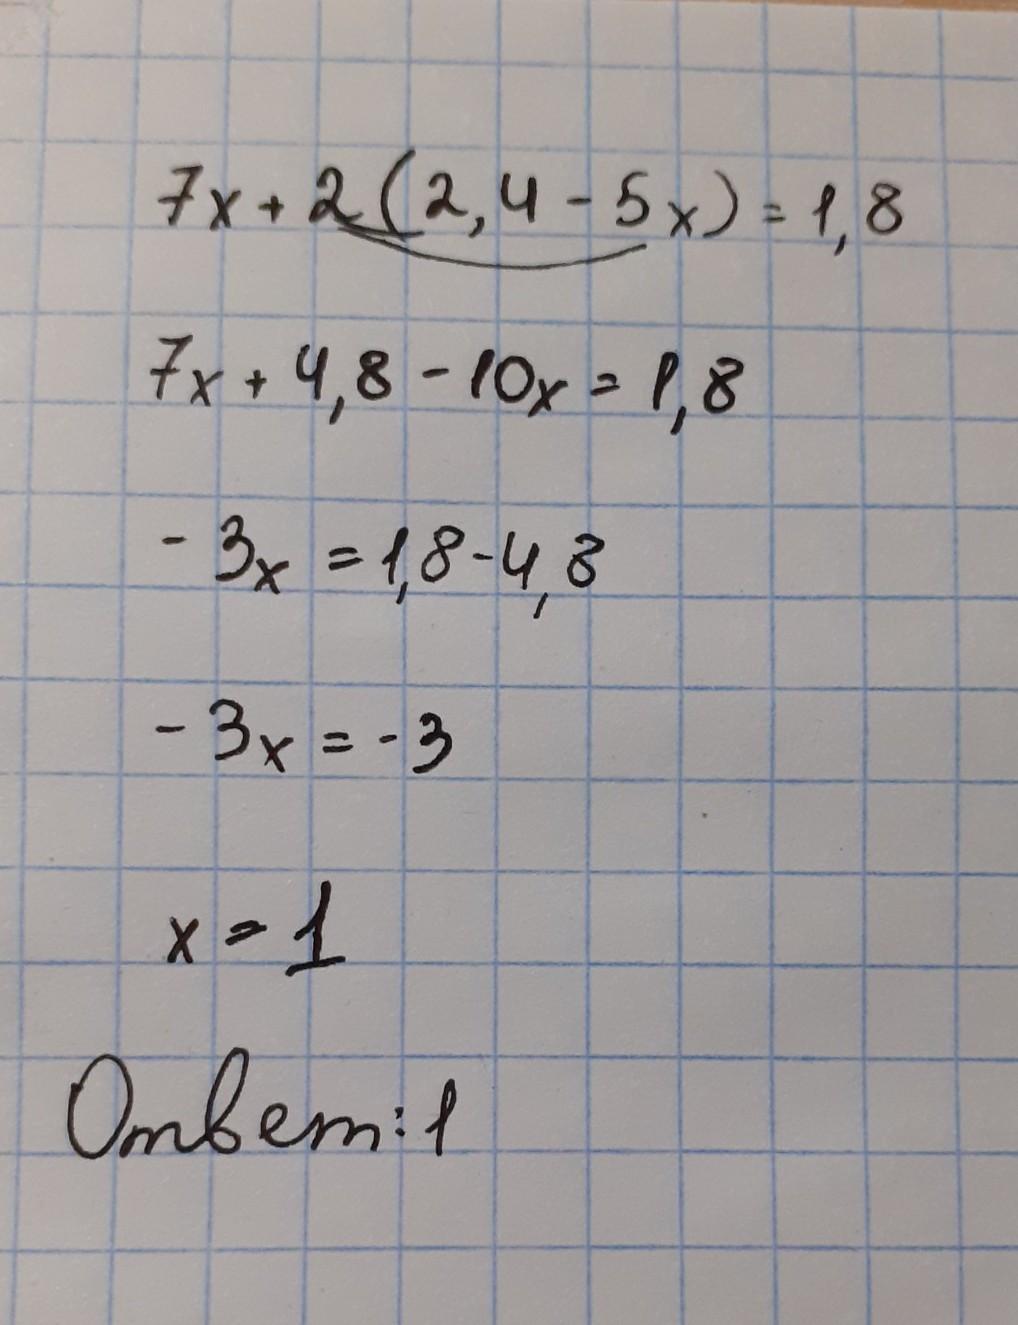 7x + 2(2,4 - 5x) = 1,8
7x + 4,8 - 10x = 1,8
- 3x = 1,8 - 4,8
- 3x = - 3
x = 1
Ответ: 1